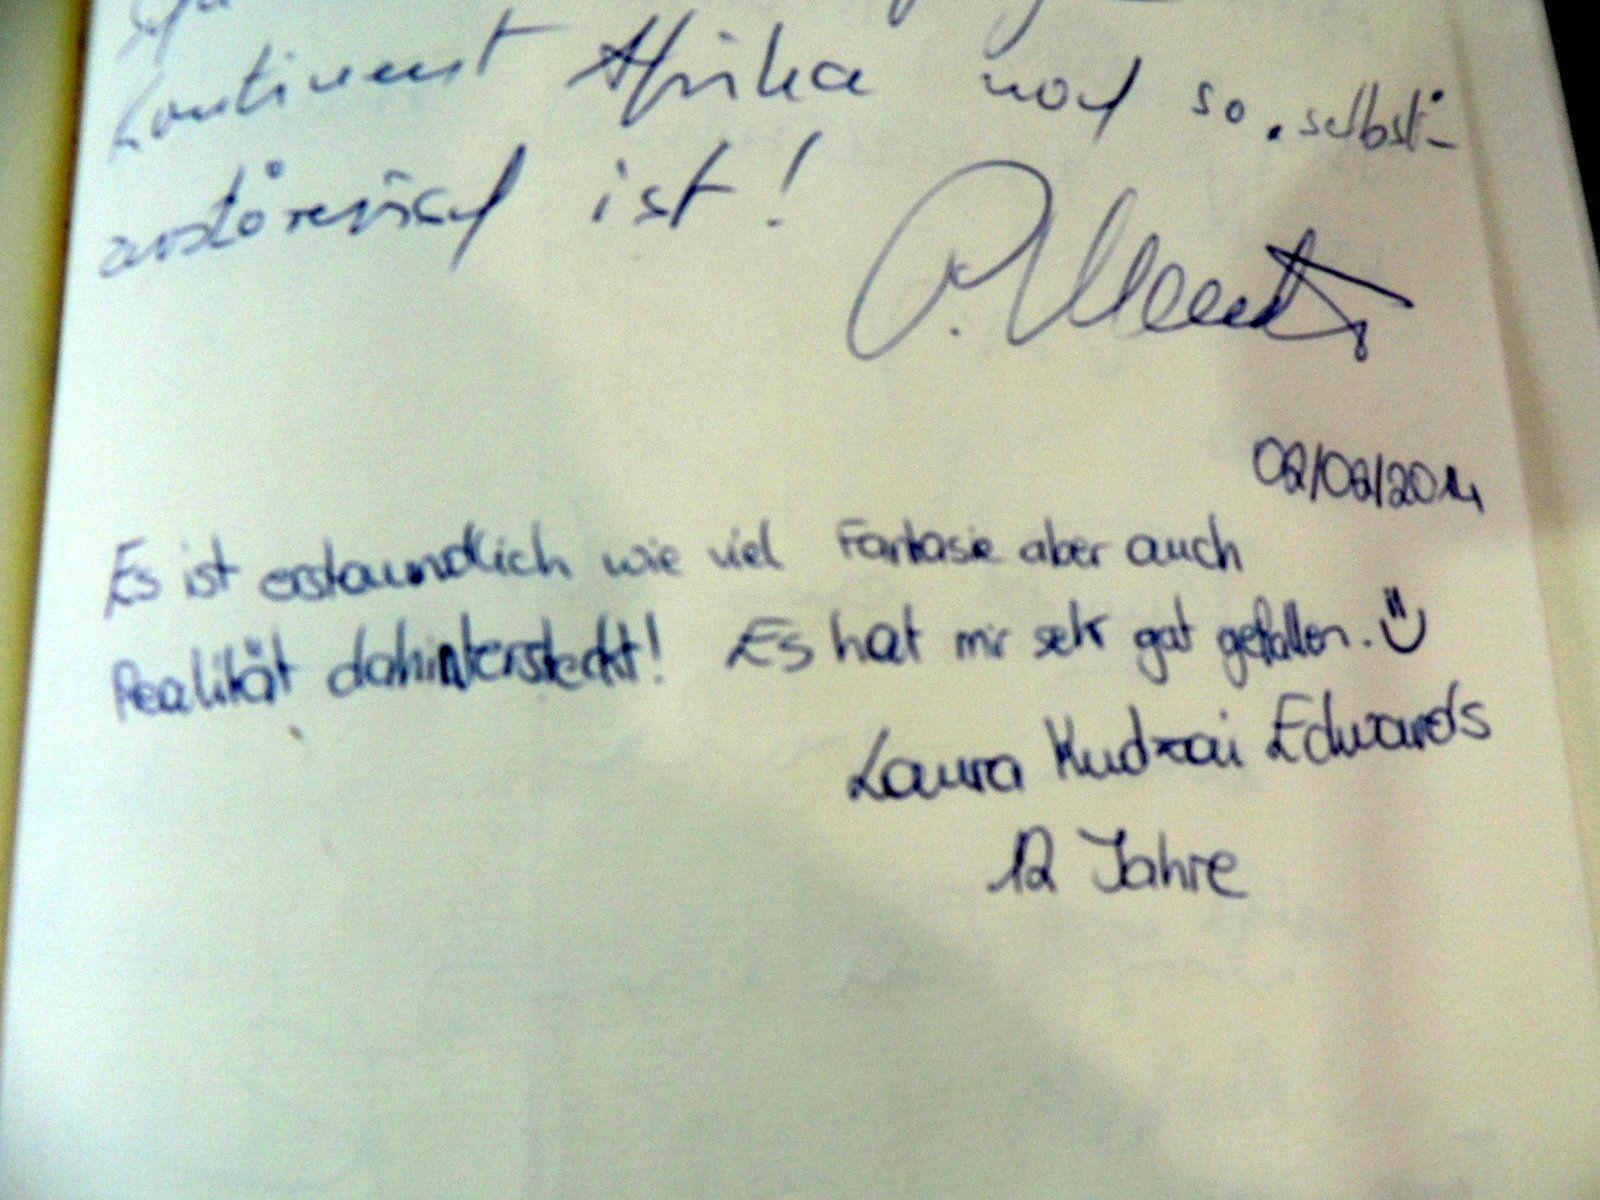 Kontinent Afrika noch so selbst-
zerstörerisch ist!
02/02/2014
Es ist erstaundlich wie viel Fantasie aber auch
Realität dahintersteckt! Es hat mir sehr gut gefallen.
Laura Kudzai Edwards
12 Jahre